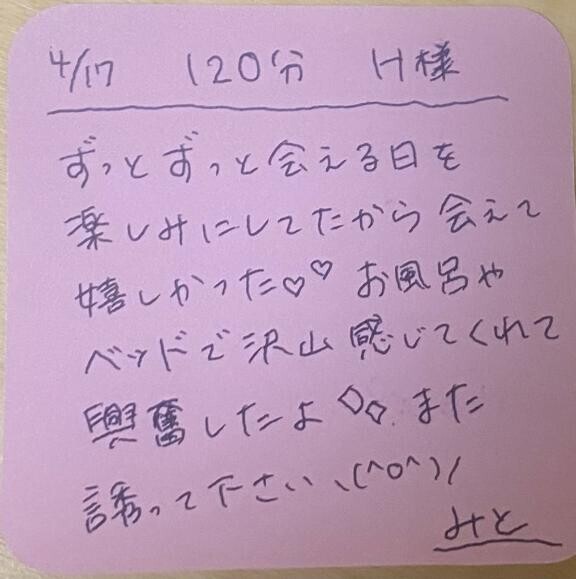 4/17 120分 H様
ずっとずっと会える日を
楽しみにしてたから会えて
嬉しかった♡♡ お風呂や
ベッドで沢山感じてくれて
興奮したよ◇◇ また
誘って下さい、(^o^)/
みと